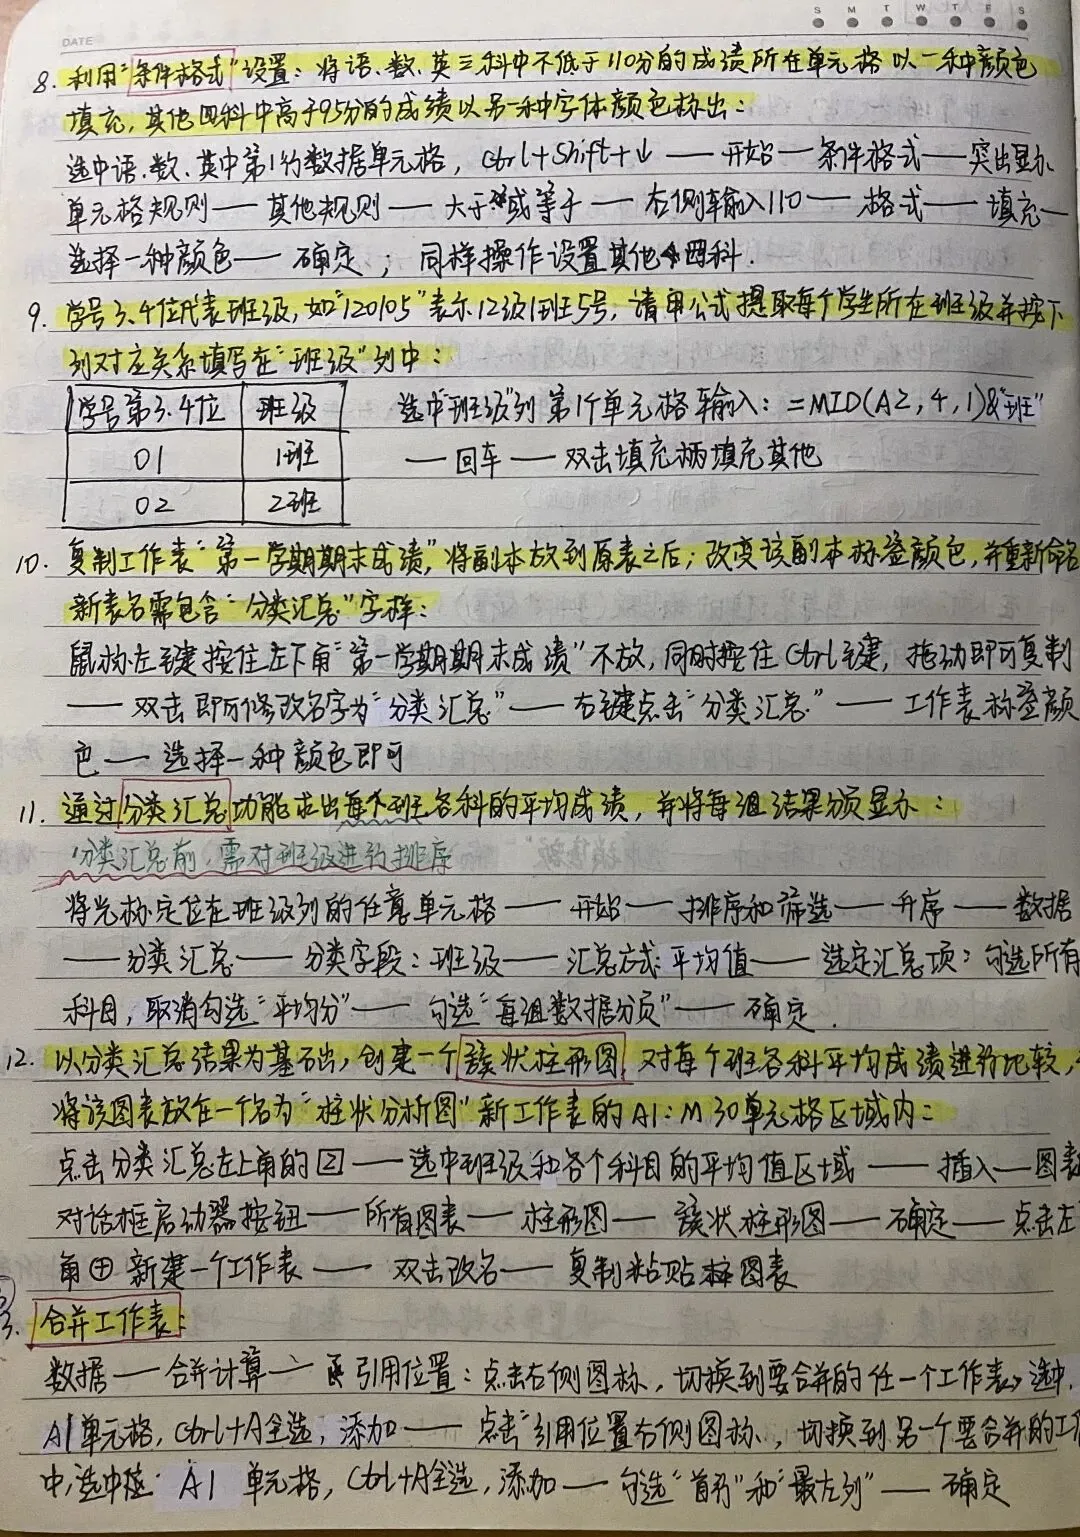 S M T W T F S
DATE
8. 利用“条件格式”设置：将语、数、英三科中不低于110分的成绩所在单元格以一种颜色
填充，其他四科中高于95分的成绩以另一种字体颜色标出：
选中语、数、英中第1行数据单元格，Ctrl+Shift+↓ —— 开始 —— 条件格式 —— 突出显示
单元格规则 —— 其他规则 —— 大于或等于 —— 右侧输入110 —— 格式 —— 填充 ——
选择一种颜色 —— 确定；同样操作设置其他四科.
9. 学号3、4位代表班级，如“120105”表示12级1班5号，请用公式提取每个学生所在班级并按下
列对应关系填写在“班级”列中：
学号第3.4位 班级
01 1班
02 2班
选中“班级”列第1个单元格输入：=MID(A2,4,1)&“班”
—— 回车 —— 双击填充柄填充其他
10. 复制工作表“第一学期期末成绩”，将副本放到原表之后；改变该副本标签颜色，并重新命名
新表名需包含“分类汇总”字样：
鼠标左键按住左下角“第一学期期末成绩”不放，同时按住Ctrl键，拖动即可复制
—— 双击即可修改名字为“分类汇总” —— 右键点击“分类汇总” —— 工作表标签颜
色 —— 选择一种颜色即可
11. 通过分类汇总功能求出每个班各科的平均成绩，并将每组结果分页显示：
分类汇总前，需对班级进行排序
将光标定位在班级列的任意单元格 —— 开始 —— 排序和筛选 —— 升序 —— 数据
—— 分类汇总 —— 分类字段：班级 —— 汇总方式：平均值 —— 选定汇总项：勾选所有
科目，取消勾选“平均分” —— 勾选“每组数据分页” —— 确定.
12. 以分类汇总结果为基础，创建一个簇状柱形图，对每个班各科平均成绩进行比较，
将该图表放在一个名为“柱状分析图”新工作表的A1：M30单元格区域内：
点击分类汇总左上角的2 —— 选中班级和各个科目的平均值区域 —— 插入 —— 图表
对话框启动器按钮 —— 所有图表 —— 柱形图 —— 簇状柱形图 —— 确定 —— 点击左
角⊕新建一个工作表 —— 双击改名 —— 复制粘贴图表
3. 合并工作表：
数据 —— 合并计算 —— 引用位置：点击右侧图标，切换到要合并的任一个工作表，选中
A1单元格，Ctrl+A全选，添加 —— 点击“引用位置右侧图标，切换到另一个要合并的工
中，选中 A1 单元格，Ctrl+A全选，添加 —— 勾选“首行”和“最左列” —— 确定